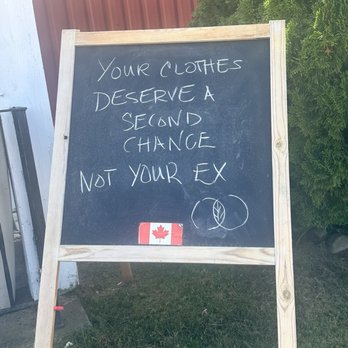 YOUR CLOTHES
DESERVE A
SECOND
CHANCE
NOT YOUR EX